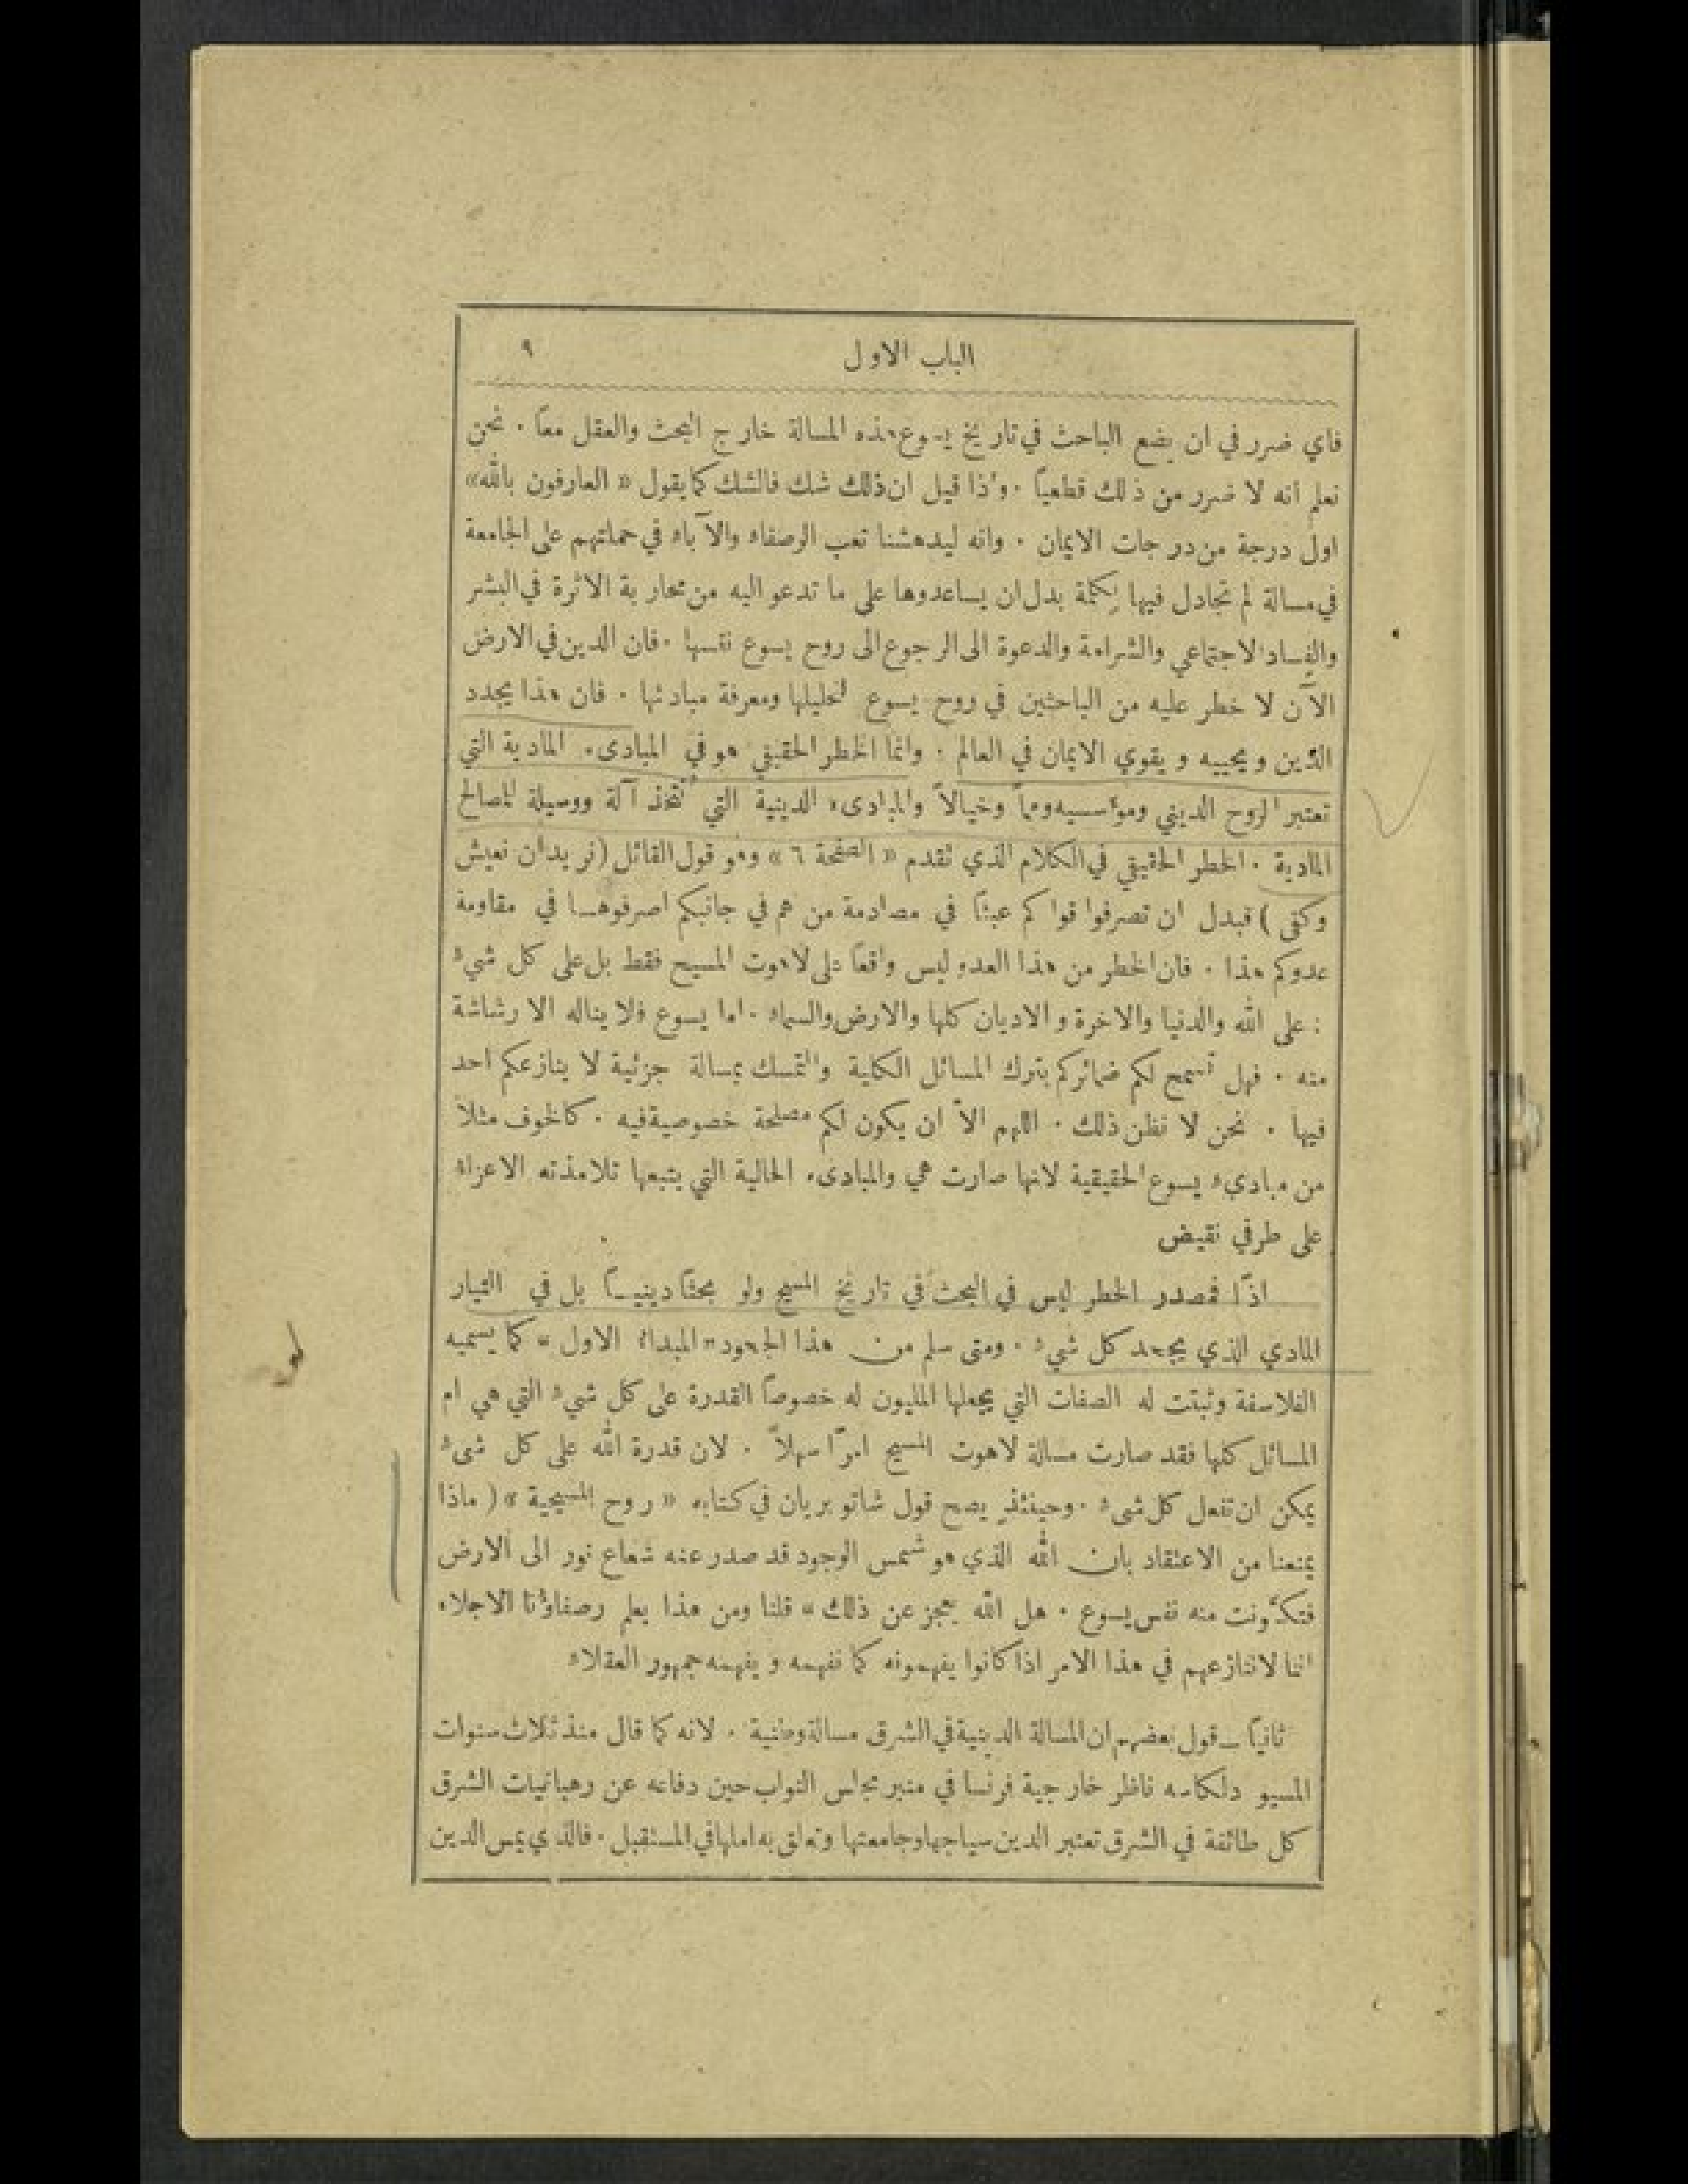 الباب الاول ٩
فاي ضرر في ان يضع الباحث في تاريخ يسوع هذه المسالة خارج البحث والعقل معاً . نحن
نعلم انه لا ضرر من ذلك قطعياً . واذا قيل ان ذلك شك فالشك كما يقول « العارفون بالله»
اول درجة من درجات الايمان . وانه ليدهشنا تعب الرصفاء والآباء في حملتهم على الجامعة
في مسالة لم تجادل فيها بكلمة بدل ان يساعدوها على ما تدعو اليه من محاربة الاثرة في البشر
والفساد الاجتماعي والشراهة والدعوة الى الرجوع الى روح يسوع نفسها . فان الدين في الارض
الآن لا خطر عليه من الباحثين في روح يسوع لتحليلها ومعرفة مبادئها . فان هذا يجدد
الدين ويحييه ويقوي الايمان في العالم . وانما الخطر الحقيقي هو في المبادىء المادية التي
تعتبر الروح الديني ومؤسسيه وهماً وخيالاً والمبادىء الدينية التي تتخذ آلة ووسيلة للمصالح
المادية . الخطر الحقيقي في الكلام الذي تقدم « الصفحة ٦ » وهو قول القائل (نريد ان نعيش
وكفى ) فبدل ان تصرفوا قواكم عبثاً في مصادمة من هم في جانبكم اصرفوهـا في مقاومة
عدوكم هذا . فان الخطر من هذا العدو ليس واقعاً على لاهوت المسيح فقط بل على كل شيء
: على الله والدنيا والاخرة والاديان كلها والارض والسماء . اما يسوع فلا يناله الا رشاشة
منه . فهل تسمح لكم ضمائركم بترك المسائل الكلية والتمسك بمسالة جزئية لا ينازعكم احد
فيها . نحن لا نظن ذلك . اللهم الاّ ان يكون لكم مصلحة خصوصية فيه . كالخوف مثلاً
من مبادىء يسوع الحقيقية لانها صارت هي والمبادىء الحالية التي يتبعها تلامذته الاعزاء
على طرفي نقيض
اذاً فمصدر الخطر ليس في البحث في تاريخ المسيح ولو بحثاً دينيـاً بل في التيار
المادي الذي يجحد كل شيء . ومتى سلم من هذا الجحود « المبدأ الاول » كما يسميه
الفلاسفة وثبتت له الصفات التي يجعلها المليون له خصوصاً القدرة على كل شيء التي هي ام
المسائل كلها فقد صارت مسالة لاهوت المسيح امراً سهلاً . لان قدرة الله على كل شىء
يمكن ان تفعل كل شىء . وحينئذٍ يصح قول شاتوبريان في كتابه « روح المسيحية » ( ماذا
يمنعنا من الاعتقاد بان الله الذي هو شمس الوجود قد صدر عنه شعاع نور الى الارض
فتكوّنت منه نفس يسوع . هل الله يعجز عن ذلك » قلنا ومن هذا يعلم رصفاؤنا الاجلاء
اننا لا ننازعهم في هذا الامر اذا كانوا يفهمونه كما نفهمه ويفهمه جمهور العقلاء
ثانياً — قول بعضهم ان المسالة الدينية في الشرق مسالة وطنية . لانه كما قال منذ ثلاث سنوات
المسيو دلكاسه ناظر خارجية فرنسا في منبر مجلس النواب حين دفاعه عن رهبانيات الشرق
كل طائفة في الشرق تعتبر الدين سياجها وجامعتها وتعلق به املها في المستقبل . فالذي يمس الدين